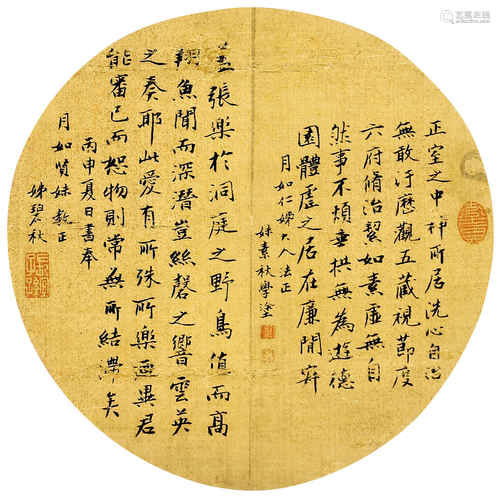 正室之中神所居洗心自治
無敢汙歷觀五藏視節度
六府脩治絜如素虛無自
然事不煩垂拱無為遊德
園體虛之居在廉間寂
月如仁姊大人法正
妹素秋學塗
蓋張樂於洞庭之野鳥值而高
翔魚聞而深潛豈絲磬之響雲英
之奏耶此愛有所殊所樂固異君
能審己而恕物則常無所結滯矣
丙申夏日書奉
月如賢妹教正
姊碧秋